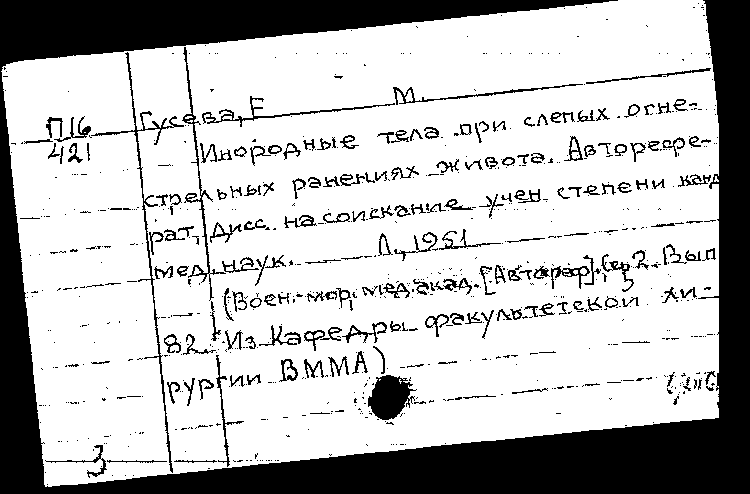 П16 Гусева, Е М.
421 Инородные тела при слепых огне-
стрельных ранениях живота. Авторефе-
рат, дисс. на соискание учен степени канд
мед. наук. Л., 1951
(Воен.-мор. мед. акад. [Автореф]. Сер 2. Вып
82. Из Кафедры факультетской хи-
рургии ВММА)
3